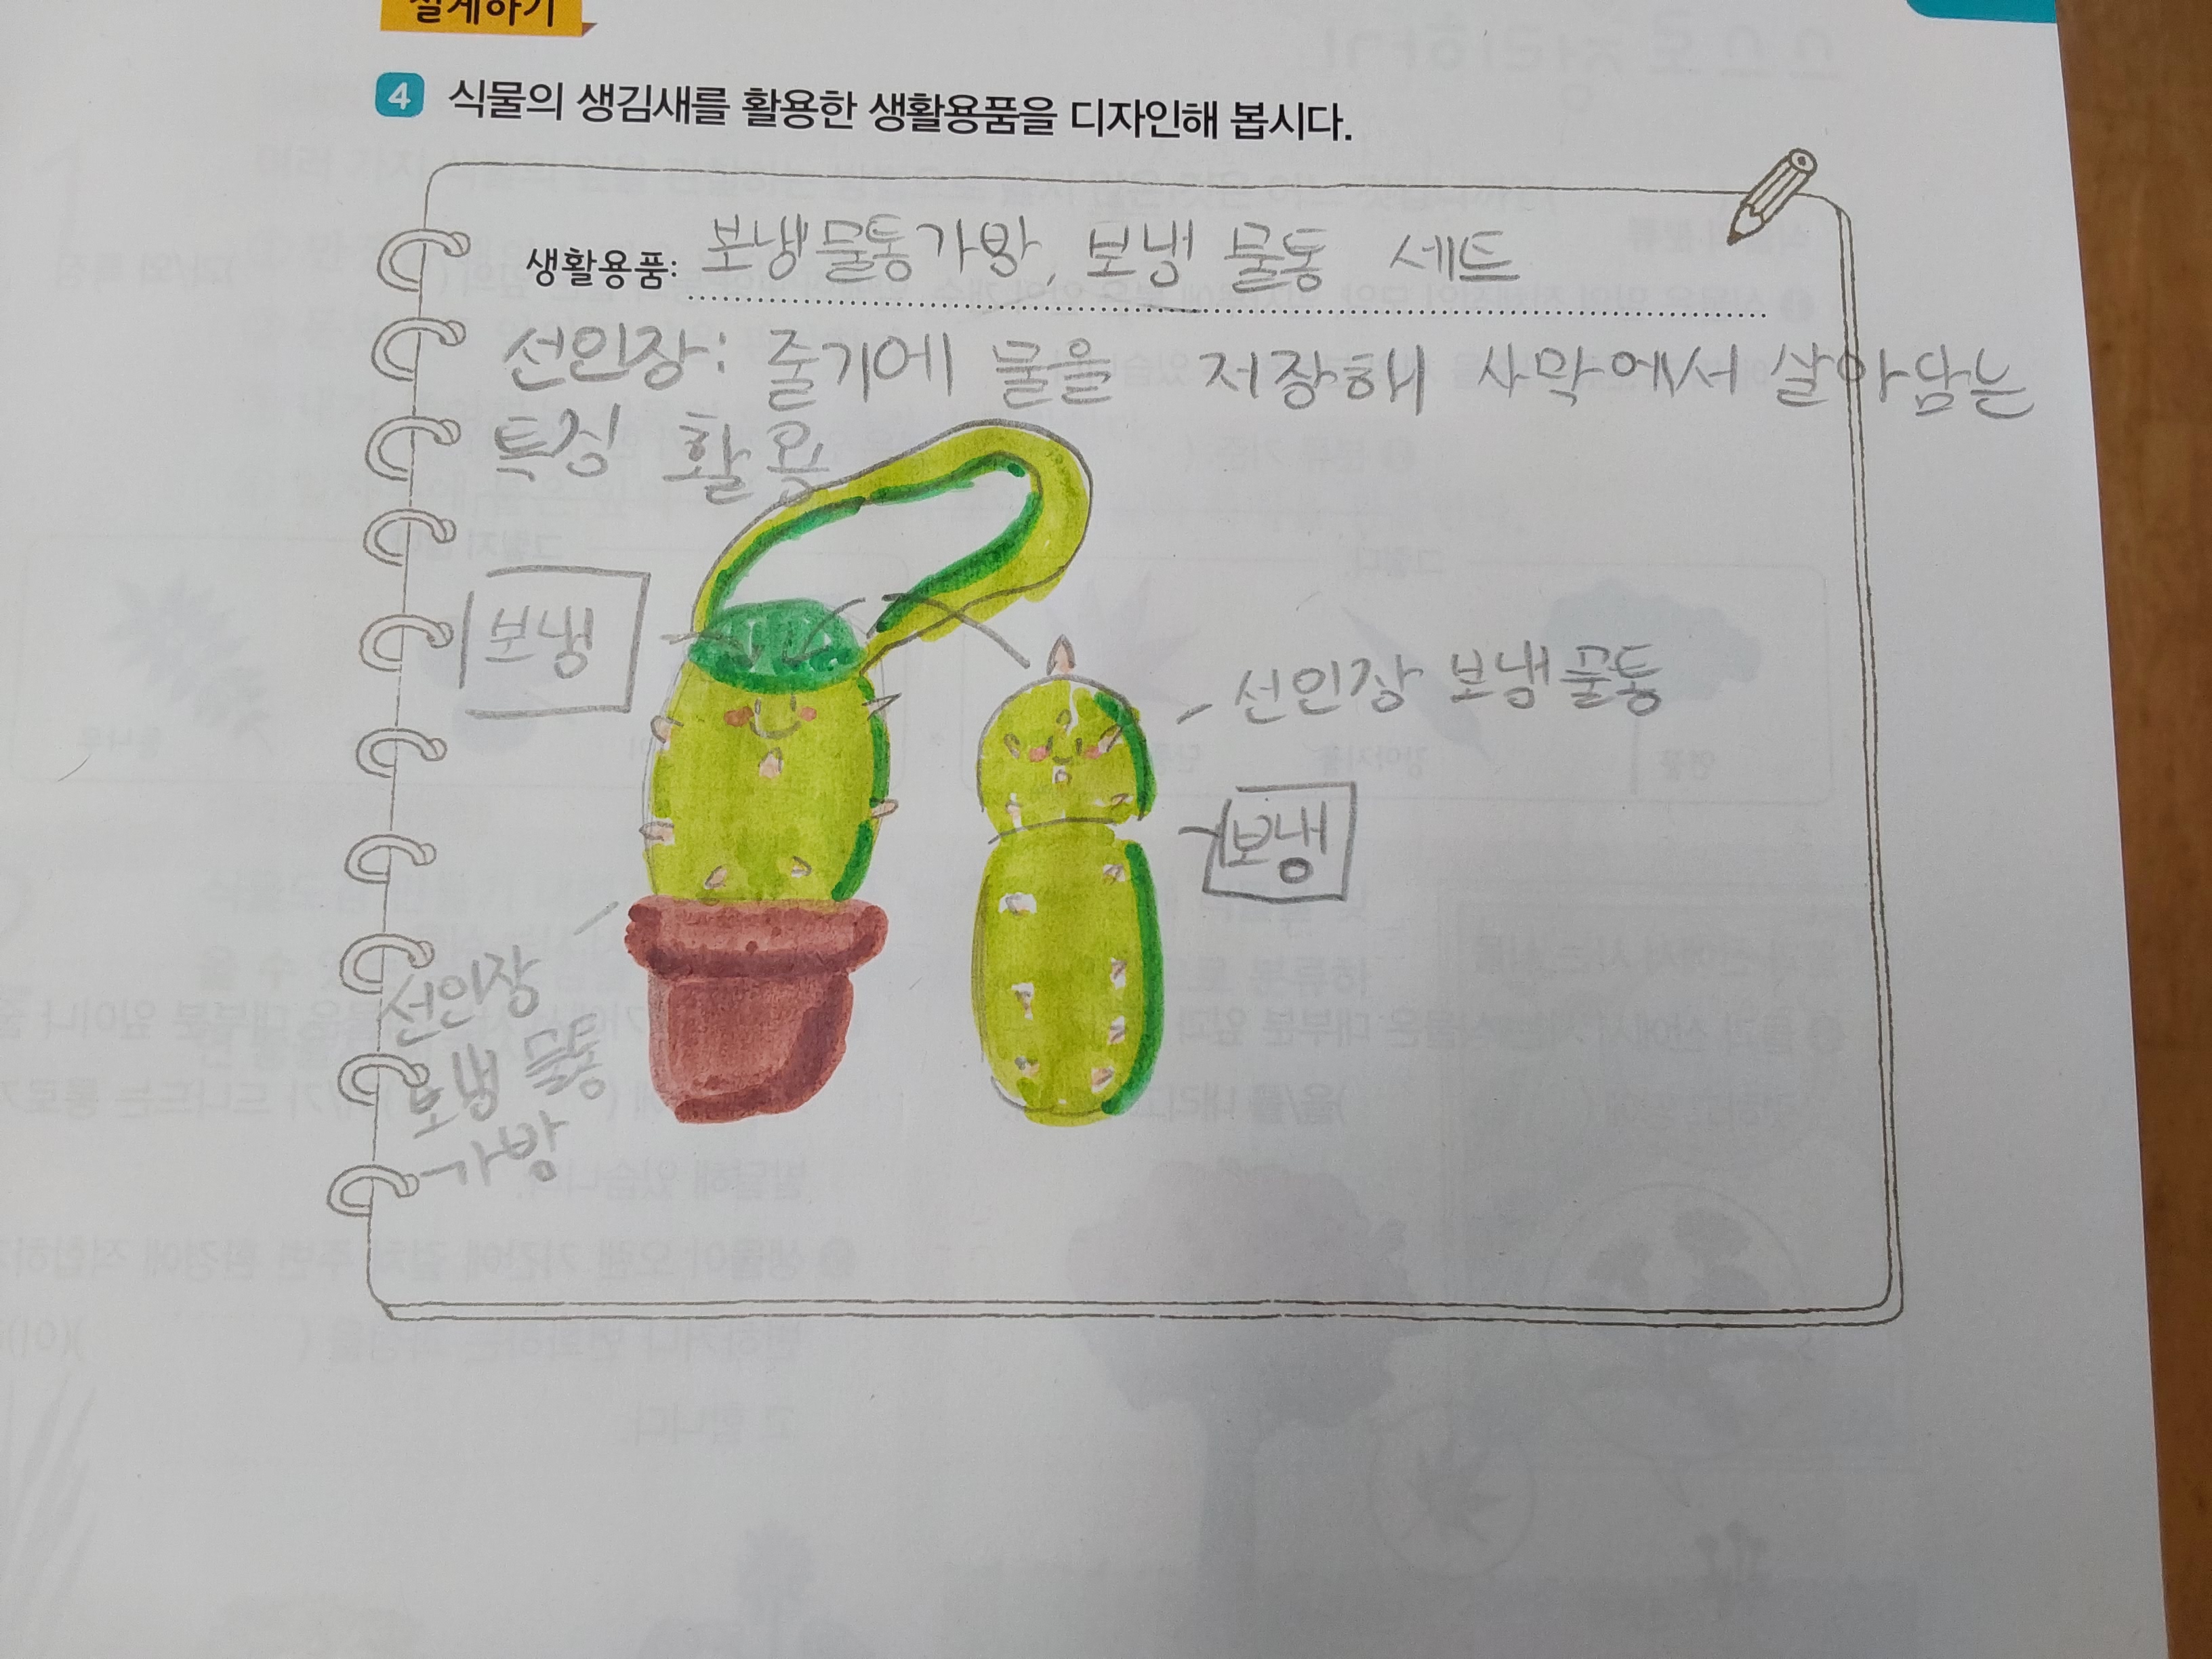 설계하기
4 식물의 생김새를 활용한 생활용품을 디자인해 봅시다.
생활용품: 보냉물통가방, 보냉 물통 세트
선인장: 줄기에 물을 저장해 사막에서 살아담는
특징 활용
보냉
선인장 보냉물통
보냉
선인장
보냉 물통
가방